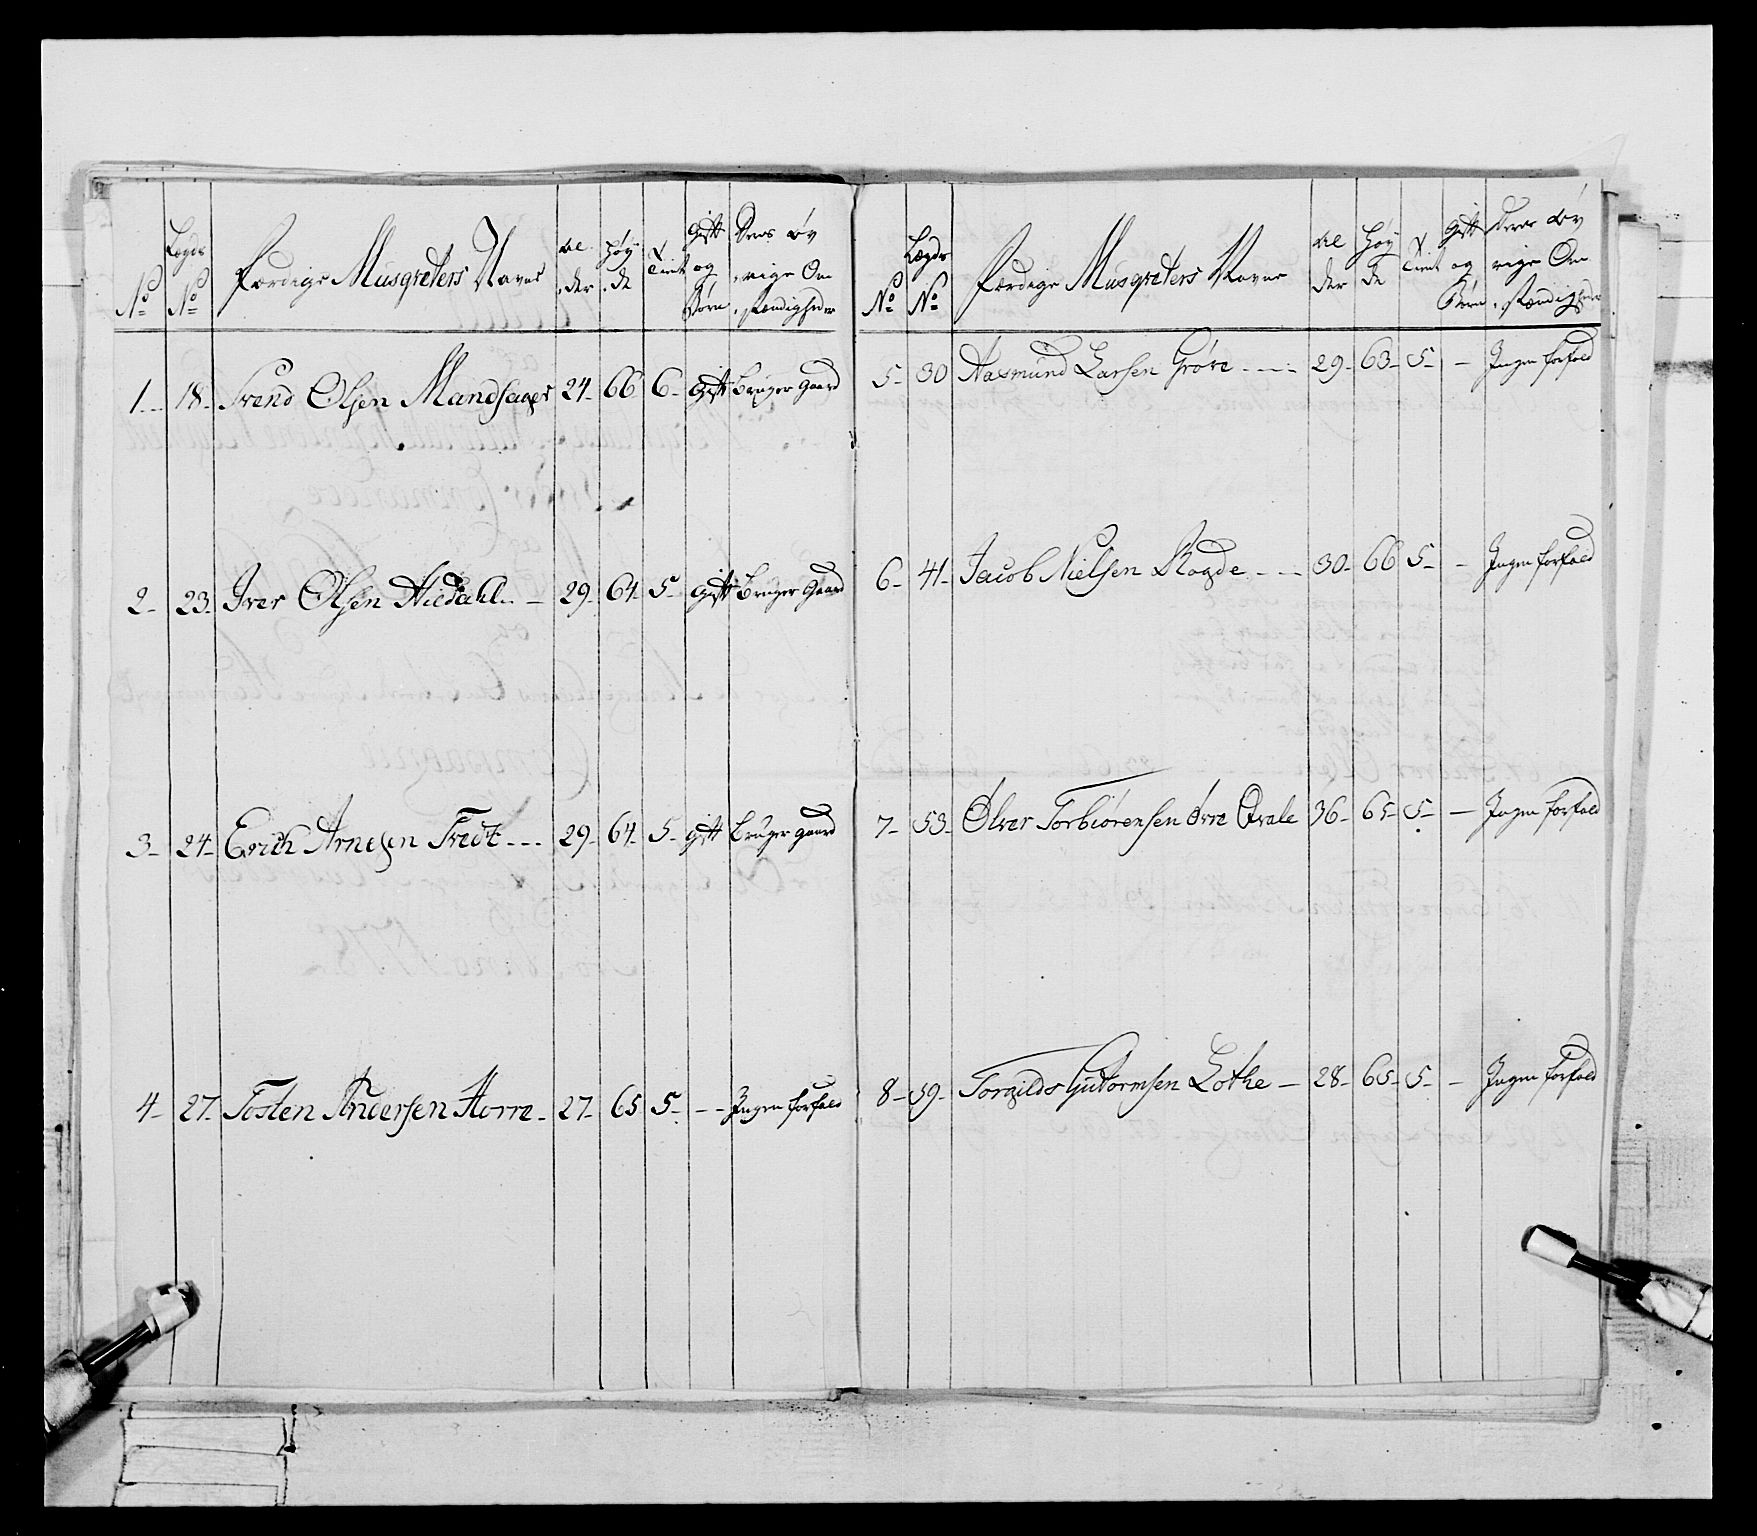 No Lægds No Færdige Musqueters Navne Al der Høy de Tient Gift og Børn Deres Øv rige Om stændigheder
1 18 Svend Olsen Mandsager 24 66 6 Gift Bruger Gaard
2 23 Iver Olsen Hildahl 29 64 5 Gift Bruger Gaard
3 24 Erich Arnesen Tredt 29 64 5 gift Bruger gaard
4 27 Tosten Andersen Horre 27 65 5 - - Ingen forfald
No Lægds No Færdige Musqueters Navne Al der Høy de Tient Gift og Børn Deres Øv rige Om stændigheder
5 30 Aasmund Larsen Grøve 29 63 5 - Ingen forfald
6 41 Jacob Nielsen Skogde 30 66 5 - Ingen forfald
7 53 Olver Torbiørensen øvre Qvale 36 65 5 - Ingen forfald
8 59 Torgilds Guttormsen Lothe 28 65 5 - Ingen forfald